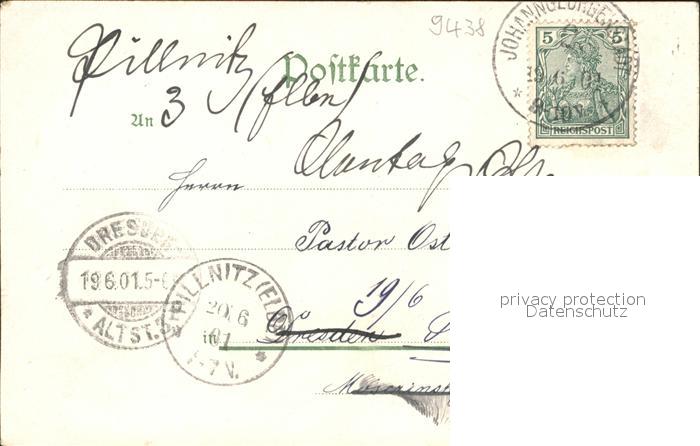 9438
JOHANNGEORGENSTADT
19.6.01
5 5
REICHSPOST
Pillnitz
Postkarte.
(Elbe)
An 3
Herrn
DRESDEN
19.6.01.5-6
* ALTST.
Pastor Ost
PILLNITZ (ELBE)
20.6
01
-7V.
*
19/6
privacy protection
Datenschutz
in Dresden